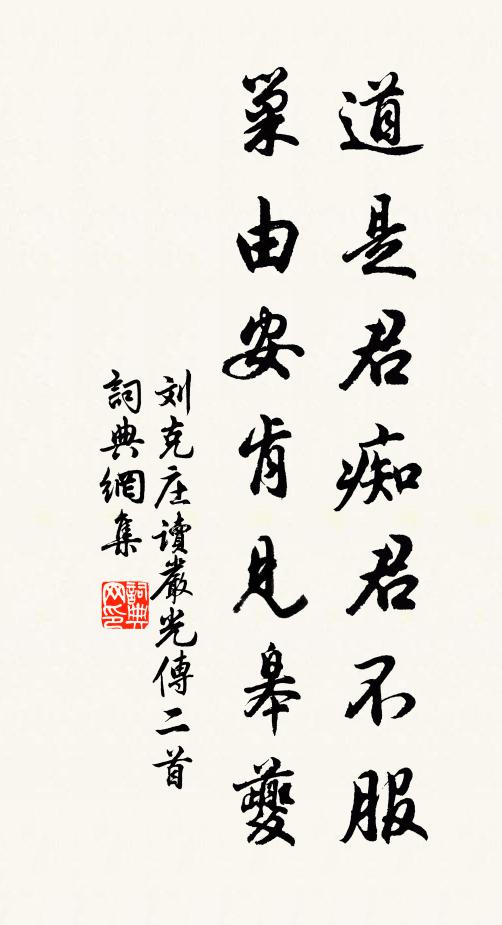 道是君痴君不服
巢由安肯見皋夔
刘克庄讀嚴光傳二首
詞典網集
詞典
网印